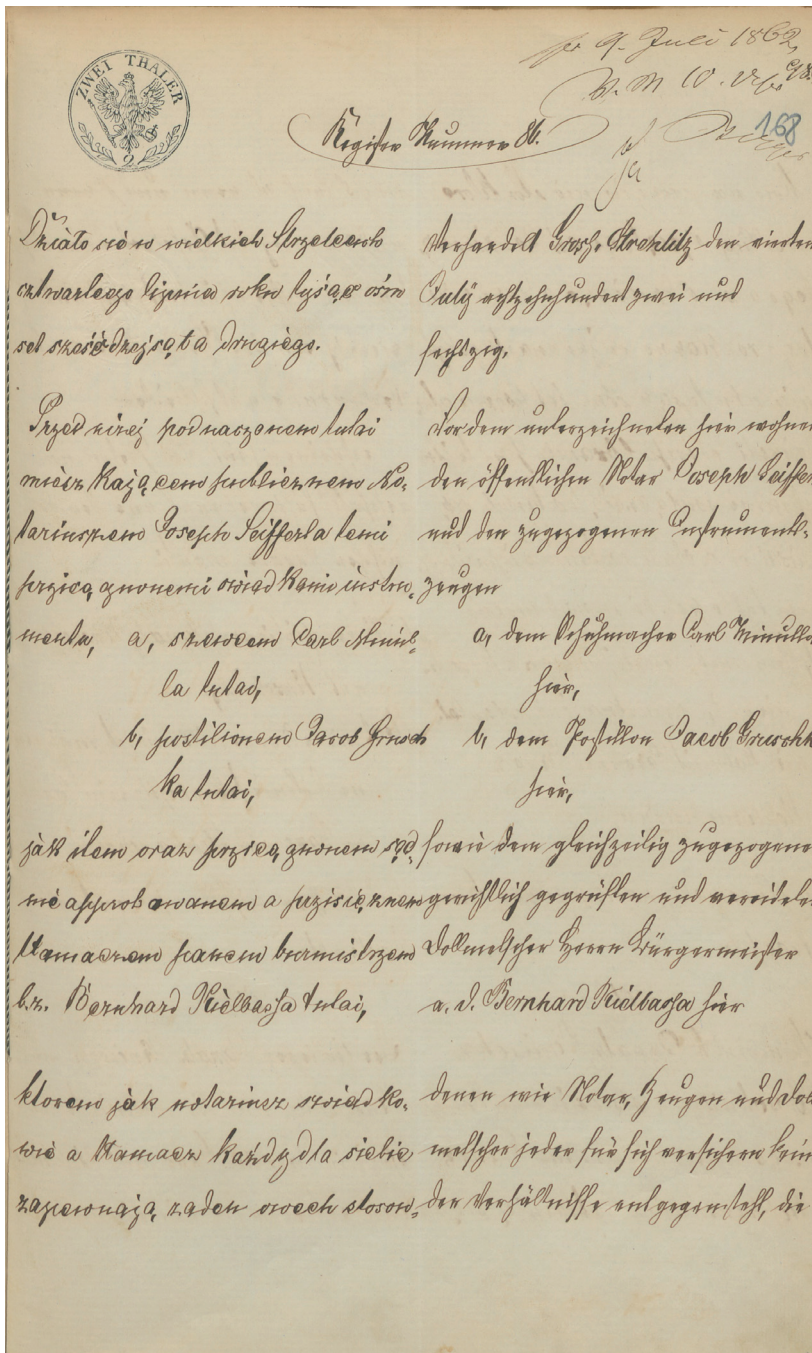 ZWEI THALER
2
9. Juli 1862
168
Register Nummer 86.
Działo się w wielkich Strzelcach
cztwartego lipnia roku tysiąc ośm
set sześćdziejsąta drugiego.
Przed niżej podnaczonem tutai
miészkającem publicznem No-
tariuszem Joseph Seifferta temi
przicągnonemi swiadkami instru-
mentu, a, szewcem Carl Minul-
la tutai,
b, postilionem Jacob Grusch
ka tutai,
jak item oraz przicągnonem sąd-
nie approbowanem a prziciężnem
tłamaczem panem burmistrzem
b.z. Bernhard Kielbassa tutai,
ktorem jak notariusz swiadko-
wie a tłamacz każdy dla siebie
zapewnają, żaden owech stosow-
Verhandelt Groß Strehlitz den vierten
July achtzehnhundert zwei und
sechszig.
Vor dem unterzeichneten hier wohnen
den öffentlichen Notar Joseph Seiffer
und den zugezogenen Instruments-
zeugen
a, dem Schuhmacher Carl Minulla
hier,
b, dem Postillon Jacob Gruschk
hier,
sowie dem gleichzeitig zugezogene
gerichtlich geprüften und vereidete
Dollmetscher Herrn Bürgermeister
a. D. Bernhard Kielbassa hier
denen wie Notar, Zeugen und Dol
metscher jeder für sich versichern kein
der Verhältnisse entgegensteht, die